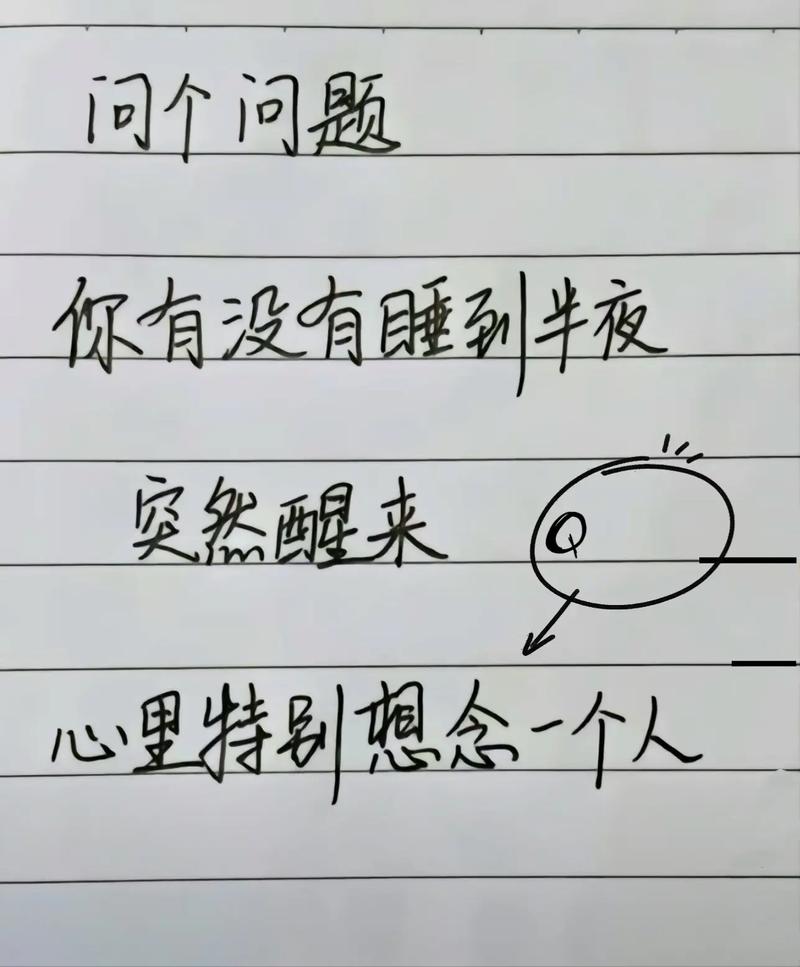 问个问题
你有没有睡到半夜
突然醒来
Q
心里特别想念一个人